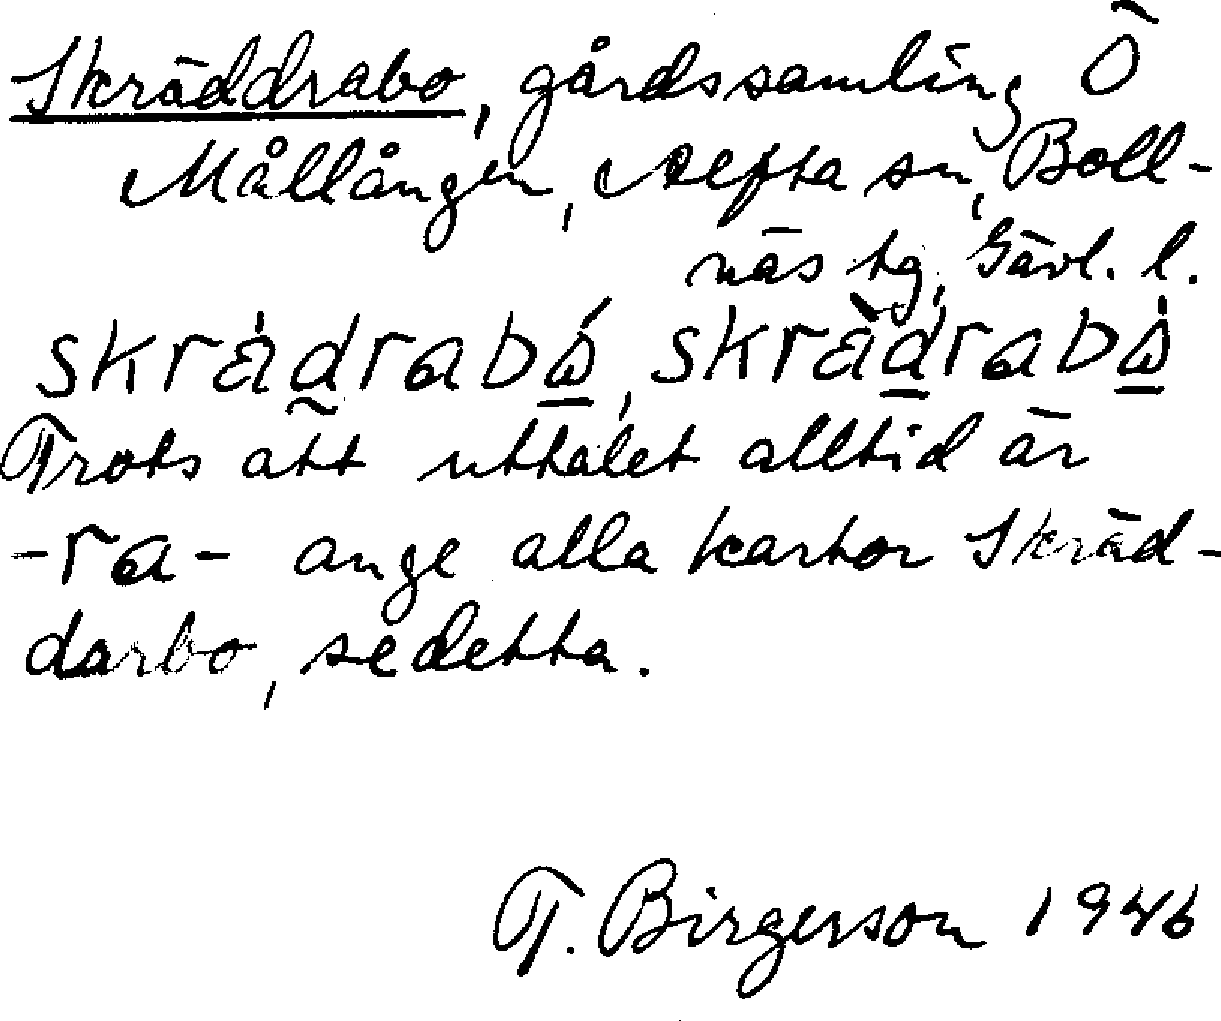 Skräddrabo, gårdssamling Ö
Mållången, Alfta sn, Boll-
näs tg, Gävl. l.
Trots att uttalet alltid är
-ra- ange alla kartor Skräd-
darbo, se detta.
T. Birgerson 1946